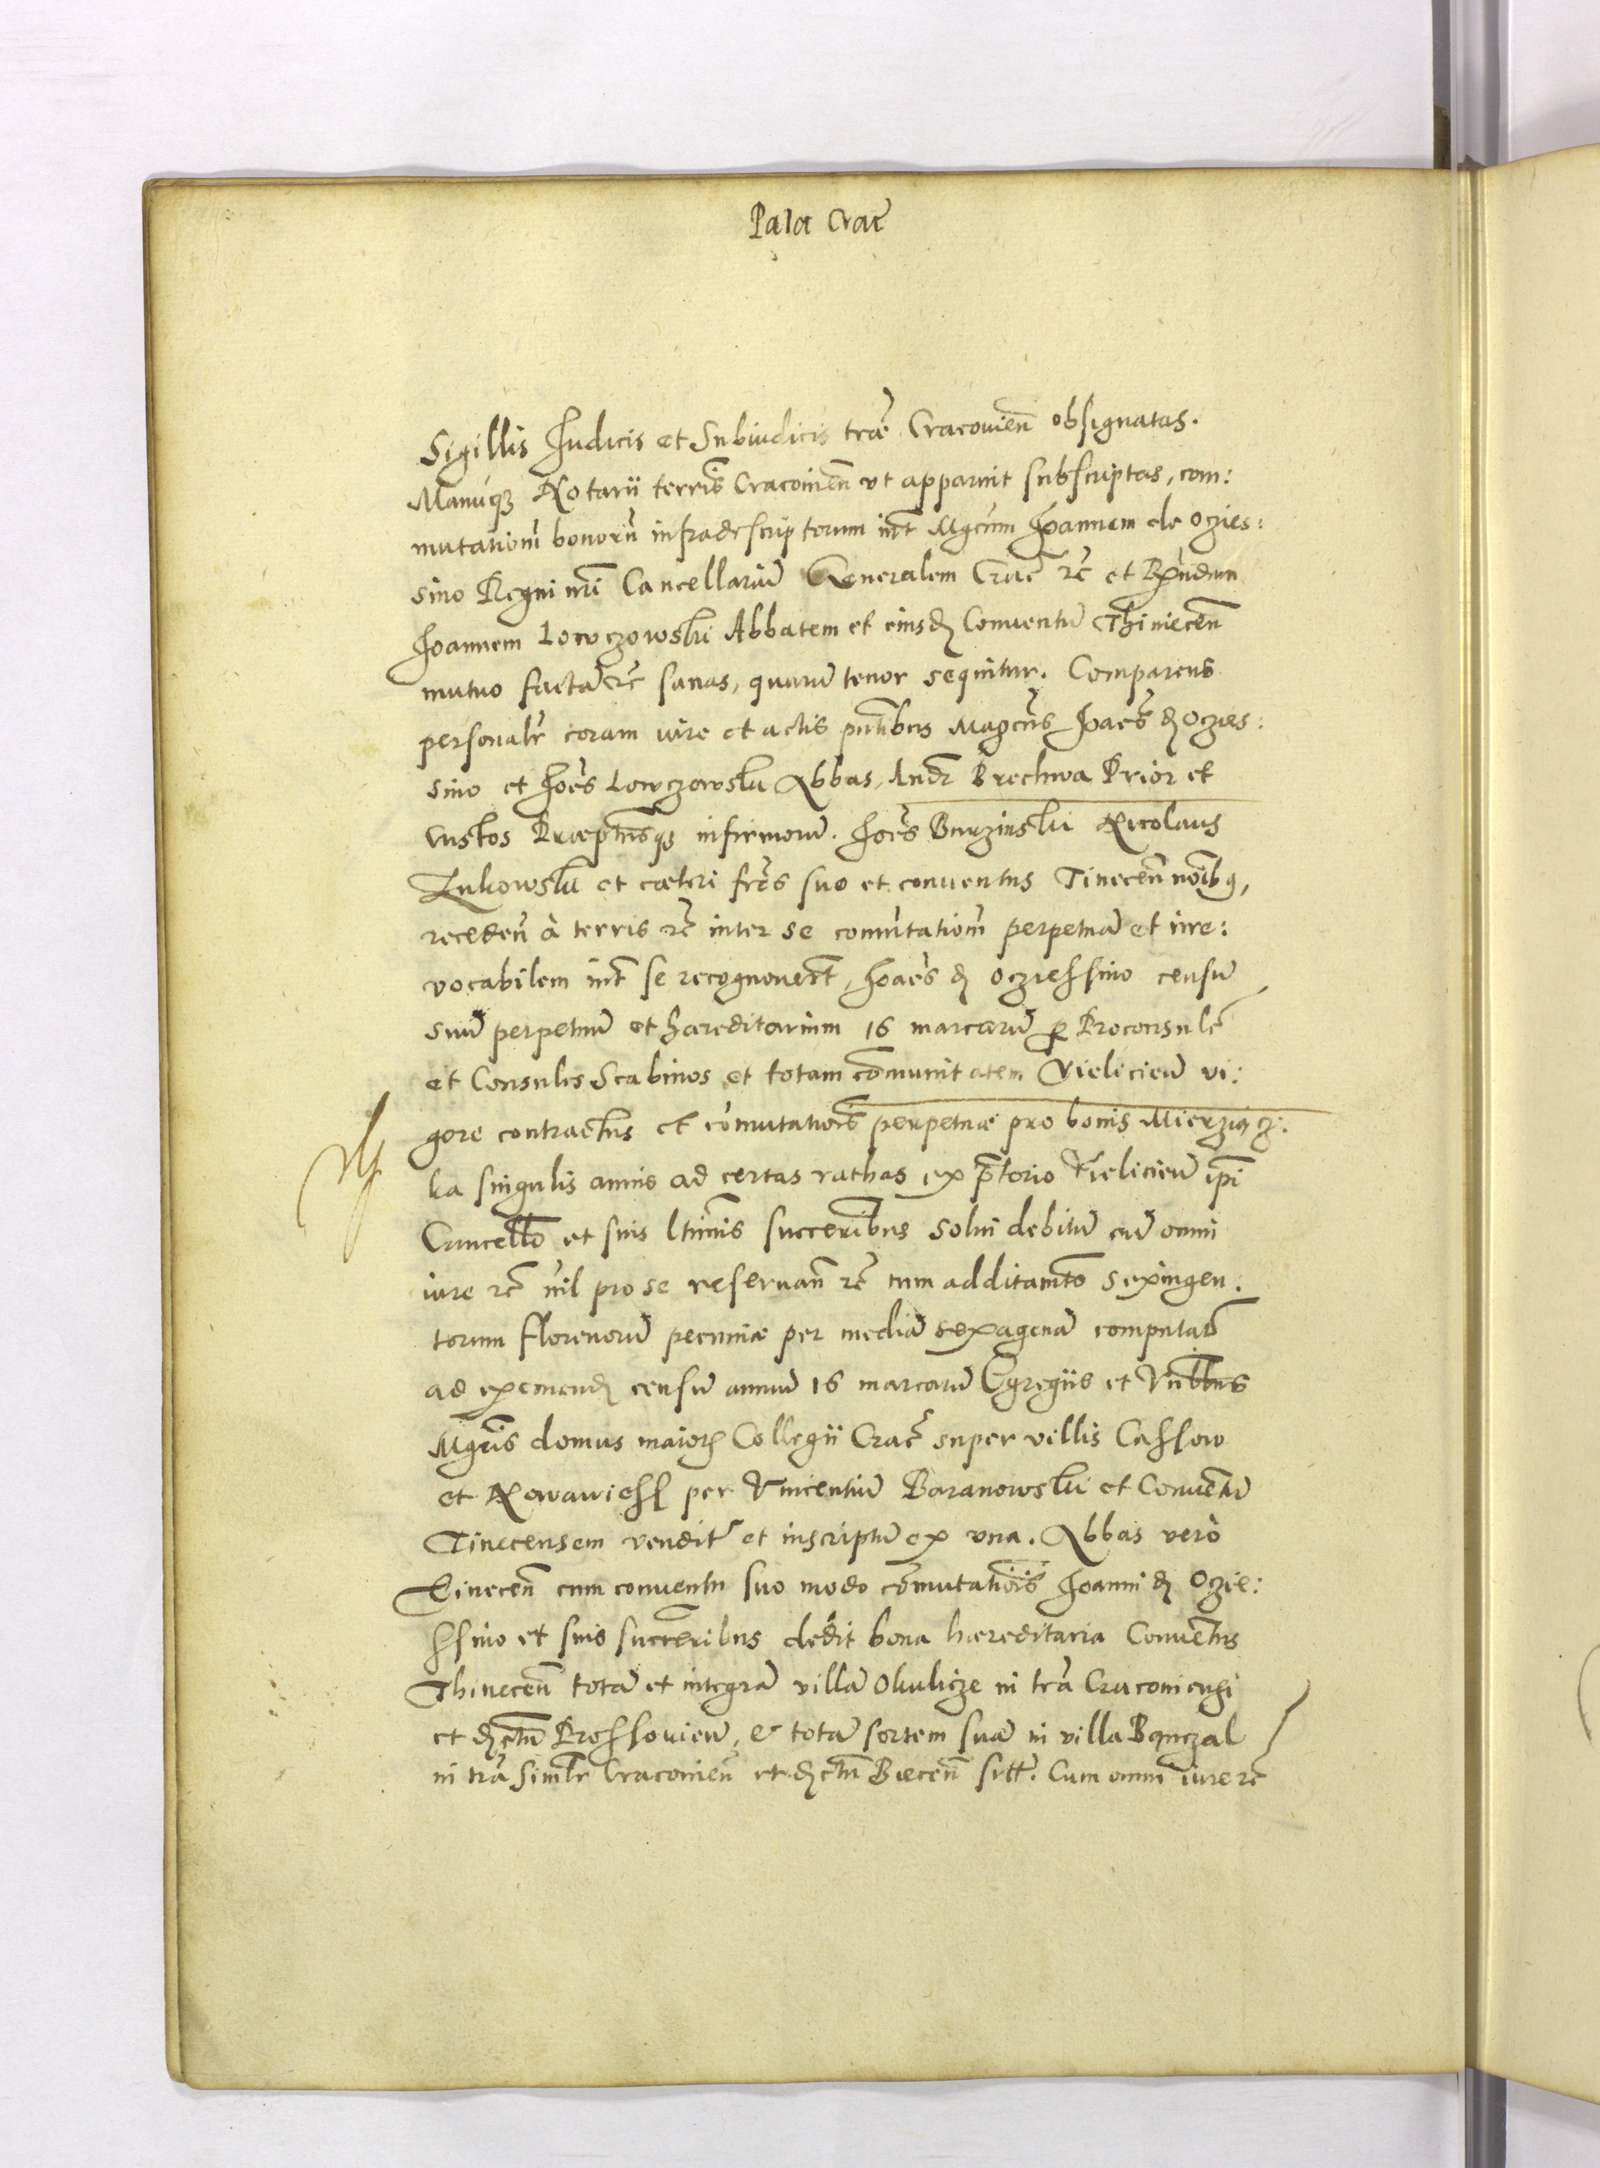 Pala Crac̄
Sigillis Iudicis et Subiudicis tr̄ae Cracouien̄ obsignatas.
Manuq₃ Notarii terris̄ Cracouien̄ vt apparuit subscriptas, com:
mutationū bonorū infradescriptorum int̄ Mgcum Joannem de Oczies:
sino Regni nr̄i Cancellariū Generalem Crac̄ rc̄ et Rn̄dum
Joannem Lowczowski Abbatem et eiusd Conuentū Thiniecen̄
mutuo factā rc̄ sanas, quarū tenor sequitur. Comparens
personalr̄ coram iure et actis pn̄tibus Magcūs Joaēs d Oczies:
sino et Joēs Lowczowski Abbas, Andr̄ Brechwa Prior et
Custos Praeptusq₃ infirmorū. Joēs Burzinski Nicolaus
Zukowski et caeteri fr̄es suo et conuentus Tinecen̄ noībq,
receden̄ à terris rc̄ inter se com̄utationū perpetuā et irre:
vocabilem int̄ se recognouer̄t, Joaēs d Oczieſſino censū
suū perpetuū et haereditarium 16 marcarū p Proconsulē
et Consules Scabinos et totam com̄unitatem Vieliciēn vi:
gore contractus et com̄utationis̄ perpetuae pro bonis Mierziącz:
ka singulis annis ad certas rathas ex p̄torio Vieliciēn ip̄i
Cancello̅ et suis ltimis̄ succerībus solui debitū cū omni
iure rc̄ nil pro se reseruan̄ rc̄ cum additam̄to sexingen.
torum florenorū pecuniae per mediā sexagenā computan̄
ad exemend censū annuū 16 marcarū Egregiis et Vn̄lbus
Mgrīs domus maior Collegii Crac̄ super villis Caſſow
et Nowawieſſ per Vincentiū Baranowski et Conuentū
Tinecensem vendit̄ et inscriptū ex vna. Abbas verò
Tinecen̄ cum conuentu suo modo com̄utationis̄ Joanni d Oczie:
ſſino et suis succerībus dedit bona haereditaria Conuentus
Thinecen̄ totā et integrā villā Okulicze in tr̄a Cracouiensi
et dc̄tu Proſſouien̄, & totā sortem suā in villa Bączal
in tr̄a similr̄ Cracouien̄ et dc̄tu Biecen̄ sitt̄. Cum omni iure rc̄